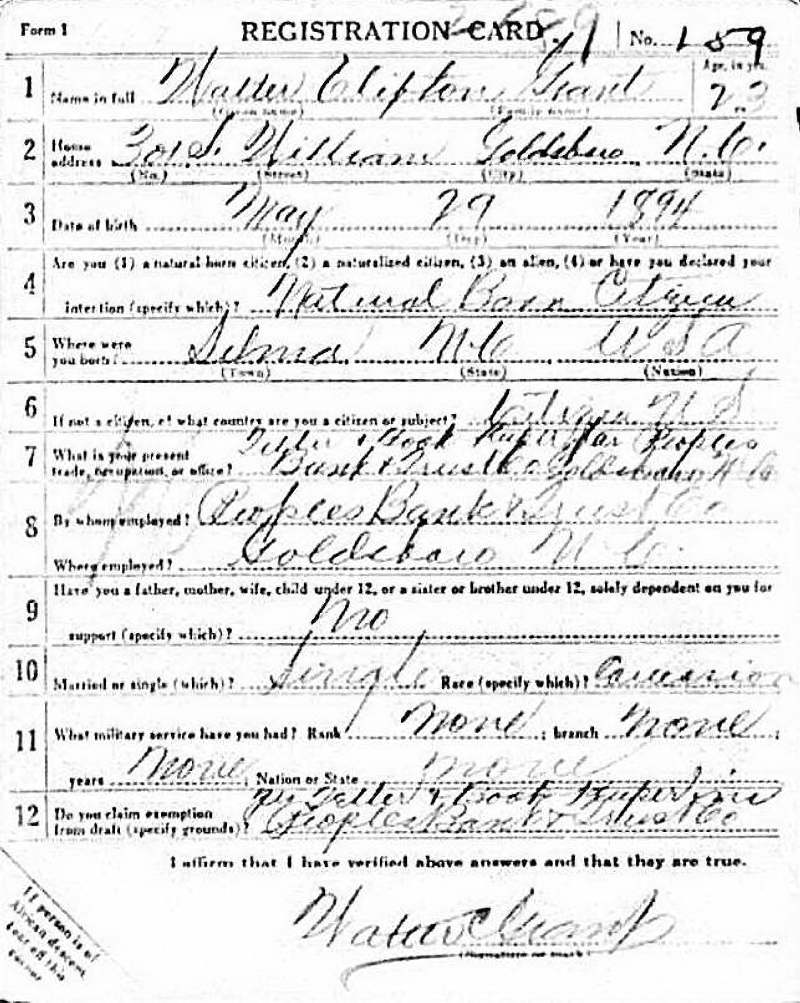 Form 1 REGISTRATION CARD. No. 189
1 Name in full Walter Clifton Grant Age, in yrs. 23
(Given name) (Family name)
2 House address 301 S. William Goldsboro, N.C.
(No.) (Street) (City) (State)
3 Date of birth May 29 1894
(Month) (Day) (Year)
4 Are you (1) a natural born citizen, (2) a naturalized citizen, (3) an alien, (4) or have you declared your
intention (specify which)? Natural Born Citizen
5 Where were you born? Selma, N.C., U S A
(Town) (State) (Nation)
6 If not a citizen, of what country are you a citizen or subject? Citizen U S
7 What is your present Teller & Book Keeper for Peoples
trade, occupation, or office? Bank & Trust Co Goldsboro N.C.
8 By whom employed? Peoples Bank & Trust Co
Where employed? Goldsboro N.C.
9 Have you a father, mother, wife, child under 12, or a sister or brother under 12, solely dependent on you for
support (specify which)? No
10 Married or single (which)? Single Race (specify which)?
11 What military service have you had? Rank None ; branch None ;
years None ; Nation or State None
12 Do you claim exemption Teller & Book Keeper
from draft (specify grounds)? Peoples Bank & Trust Co
I affirm that I have verified above answers and that they are true.
Walter C Grant
(Signature or mark)
If person is of
African descent,
tear off this
corner